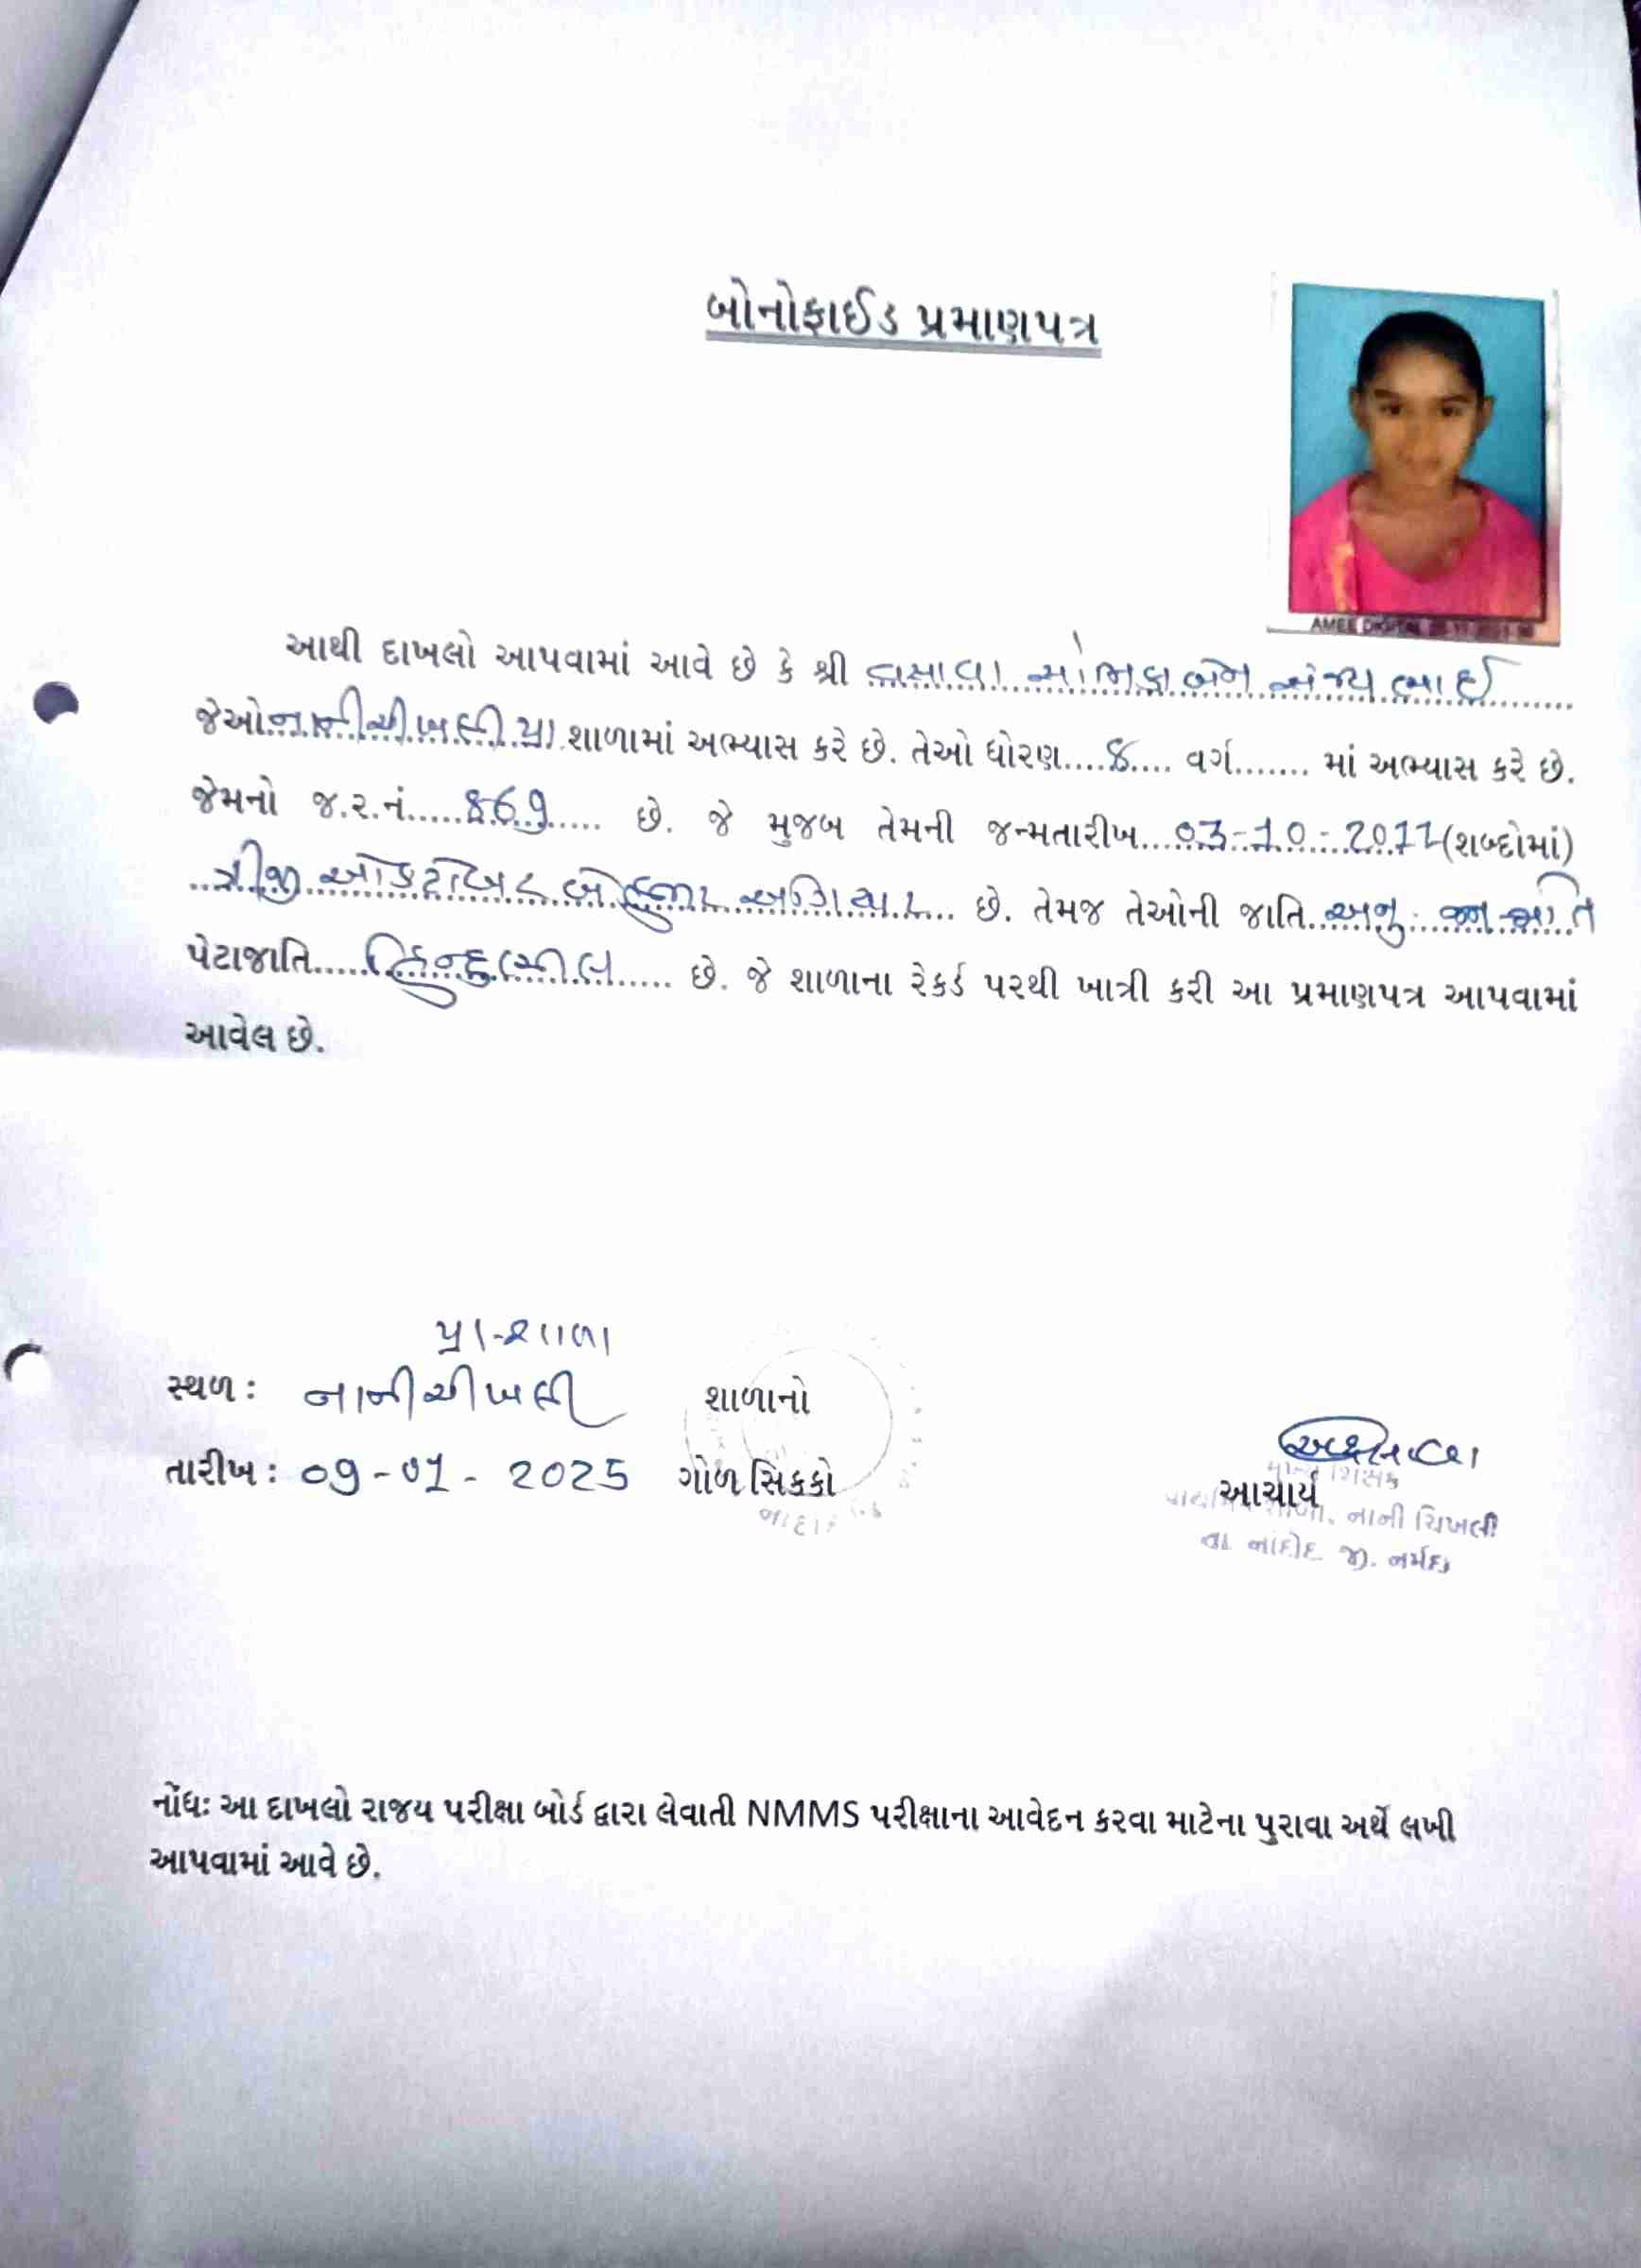 બોનોફાઈડ પ્રમાણપત્ર
AMEE DIGITAL
આથી દાખલો આપવામાં આવે છે કે શ્રી વસાવા મોનિકાબેન સંજયભાઈ
જેઓ નાનીચીખલી પ્રા. શાળામાં અભ્યાસ કરે છે. તેઓ ધોરણ....8.... વર્ગ........ માં અભ્યાસ કરે છે.
જેમનો જ.ર.નં.....869...... છે. જે મુજબ તેમની જન્મતારીખ...03-10-2011 (શબ્દોમાં)
ત્રીજી ઓકટોબર બે હજાર અગિયાર... છે. તેમજ તેઓની જાતિ..અનુ. જન જાતિ
પેટાજાતિ.....હિન્દુ ભીલ...... છે. જે શાળાના રેકર્ડ પરથી ખાત્રી કરી આ પ્રમાણપત્ર આપવામાં
આવેલ છે.
પ્રા-શાળા
સ્થળ : નાનીચીખલી શાળાનો
તારીખ : 09-01-2025 ગોળ સિક્કો
આચાર્ય
મુખ્ય શિક્ષક
પ્રાથમિક શાળા, નાની ચિખલી
તા નાંદોદ જી. નર્મદા
નોંધઃ આ દાખલો રાજય પરીક્ષા બોર્ડ દ્વારા લેવાતી NMMS પરીક્ષાના આવેદન કરવા માટેના પુરાવા અર્થે લખી
આપવામાં આવે છે.